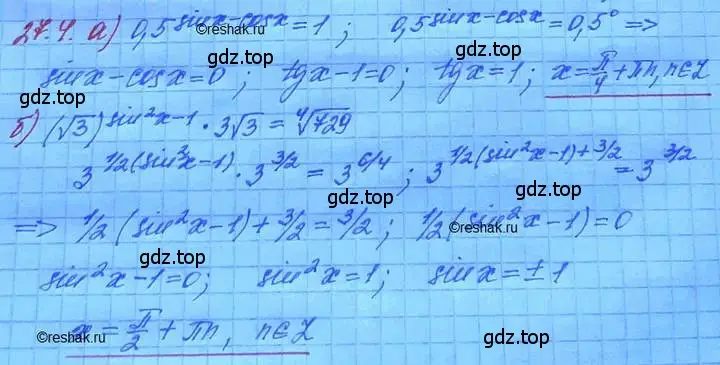 27.4. а) 0,5^(sinx-cosx) = 1; 0,5^(sinx-cosx) = 0,5° =>
sinx-cosx=0; tgx-1=0; tgx=1; x=π/4+πn, n∈Z
б) (√3)^(sin²x-1) · 3√3 = ⁴√729
3^(1/2(sin²x-1)) · 3^(3/2) = 3^(6/4); 3^(1/2(sin²x-1)+3/2) = 3^(3/2)
=> 1/2(sin²x-1)+3/2=3/2; 1/2(sin²x-1)=0
sin²x-1=0; sin²x=1; sinx=±1
x=π/2+πn, n∈Z
©reshak.ru
gdz.top
gdz.top
gdz.top
gdz.top
©reshak.ru
gdz.top
©reshak.ru
gdz.top